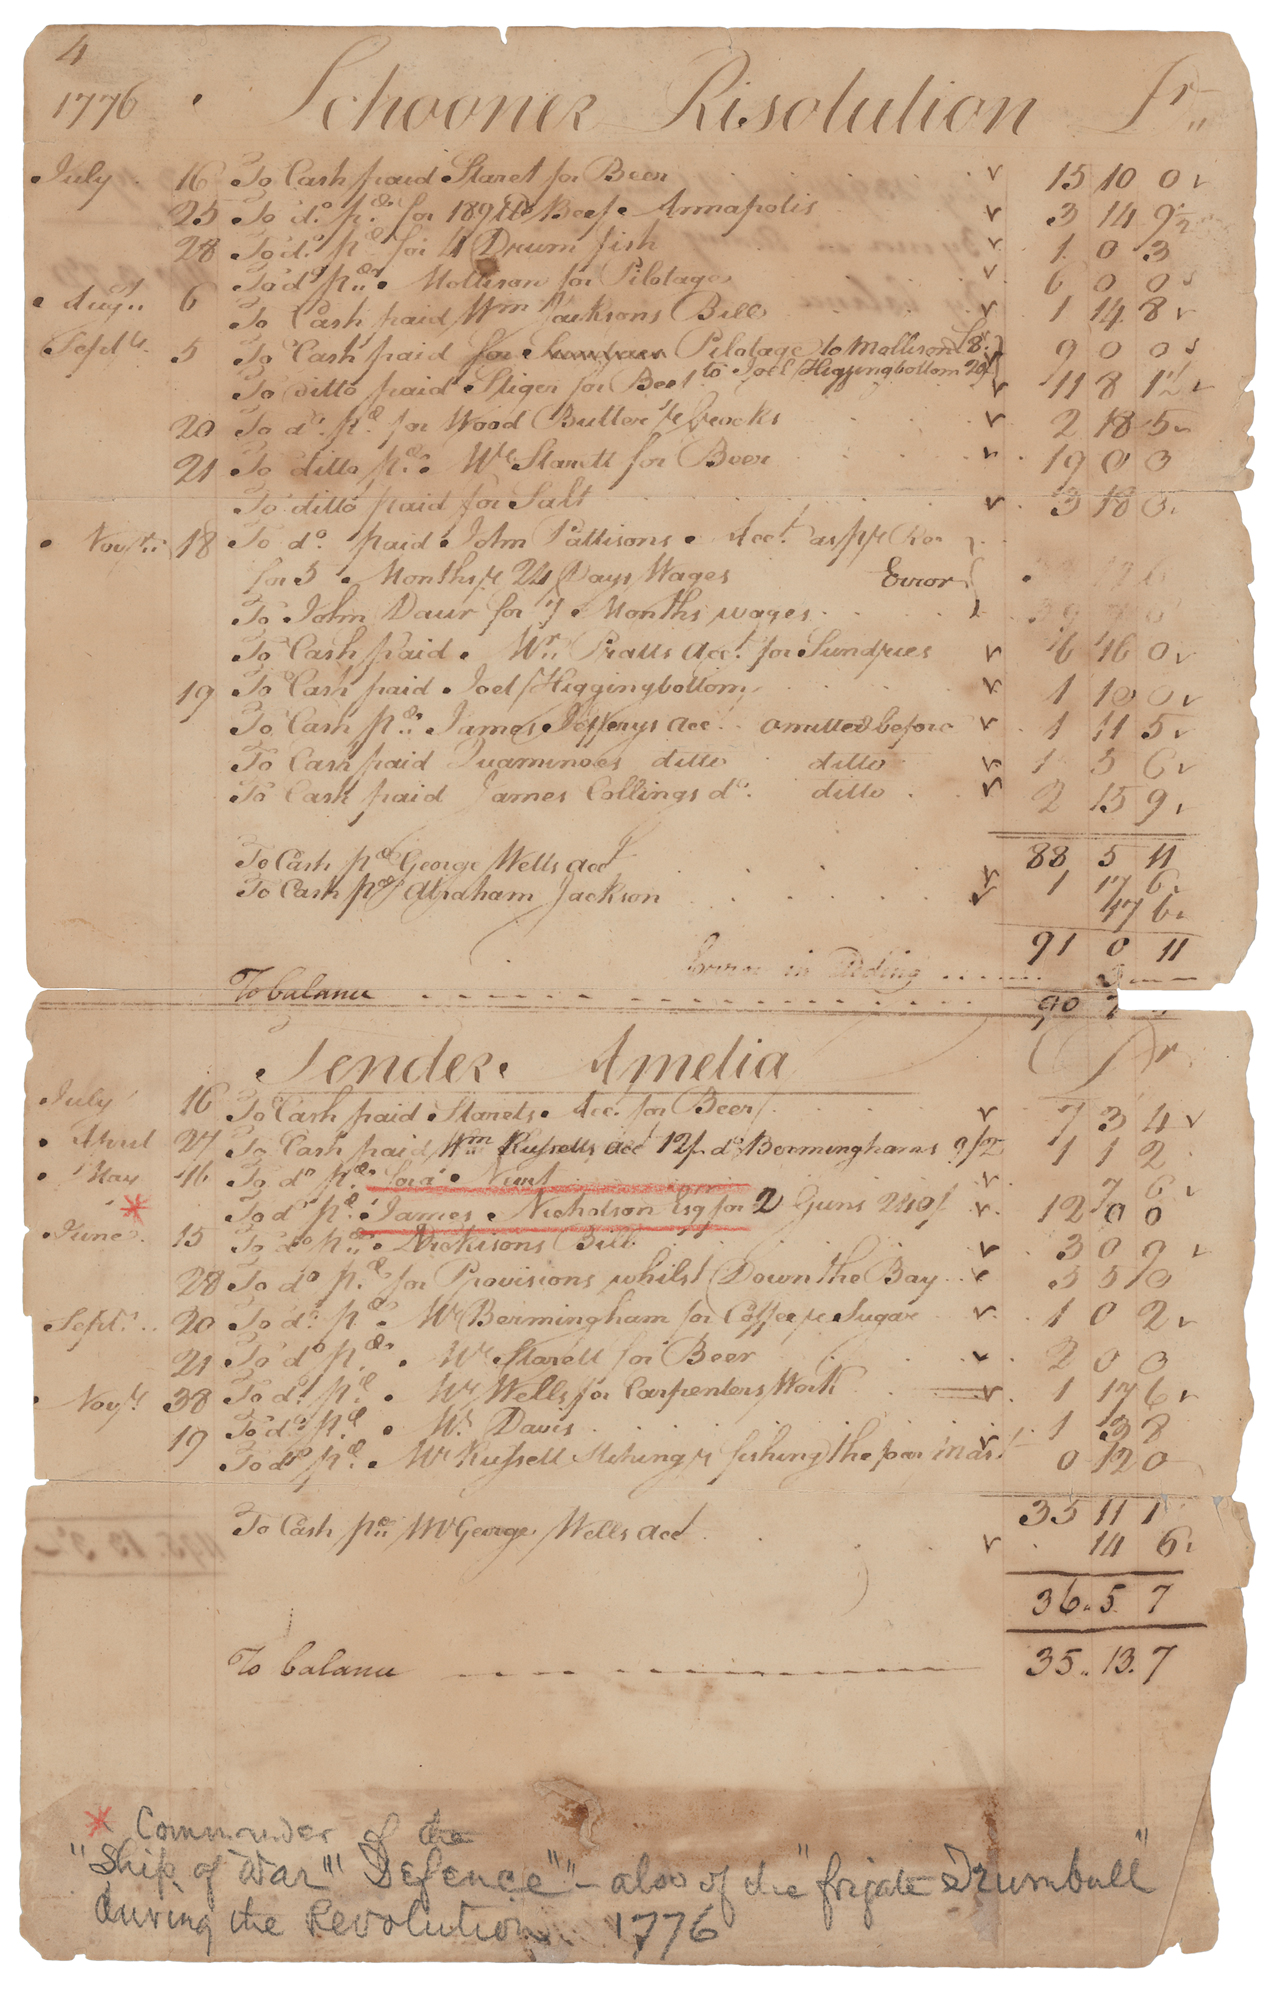 4
1776 Schooner Risolution Dr
July 16 To Cash paid Staret for Beer 15 10 0
25 To do. pd. for 189 lb Beef. Annapolis 3 14 9½
28 To do. pd. for 4 Drum fish 1 0 3
To do pd. Mollison for Pilotage 6 0 0
Augt. 6 To Cash paid Wm Jacksons Bill 1 14 8
Septr. 5 To Cash paid for Sundries Pilotage to Mollison 8 9 0 0
To ditto paid Stiger for Beef to Joel Higgingbottom 20/ 11 8 1½
20 To do. pd. for Wood Butter & 2 18 5
21 To ditto pd. Mr Starett for Beer 19 0 0
To ditto paid for Salt 3 18 0
Novr. 18 To do. paid John Pattisons Acct. as pr Ro
for 5 Months & 24 Days Wages Error
To John Daur for 7 Months wages
To Cash paid Mr. Pratts acct. for Sundries 6 16 0
19 To Cash paid Joel Higgingbottom 1 10 0
To Cash pd. James Jefferys acc. omitted before 1 11 5
To Cash paid Quaminoes ditto ditto 1 5 6
To Cash paid James Collings do. ditto 2 15 9
88 5 11
To Cash pd George Wells acct 1 17 6
To Cash pd Abraham Jackson 17 6
91 0 11
in adding
To balance 90
Tender Amelia Dr
July 16 To Cash paid Starets Acc. for Beer 7 3 4
April 27 To Cash paid Wm Russells acc 12/ do Berminghams 9/2 1 1 2
May 16 To do pd. 7 6
* To do pd. James Nicholson Esq for 2 Guns 240/ 12 0 0
June 15 To do pd. Dickisons Bill 3 0 9
28 To do pd. for Provisions whilst Down the Bay 5 5 0
Septr. 20 To do. pd. Mr Bermingham for Coffee & Sugar 1 0 2
21 To do pd. Mr Starett for Beer 2 0 0
Novr. 38 To do. pd. Mr Wells for Carpenters Work 1 17 6
To do. pd. Mr. Davis 1 3 8
19 To do pd. Mr Russell & fishing the mast 0 12 0
35 11 1
To Cash pd. Mr George Wells acct 14 6
36 .. 5. 7
To balance 35 .. 13. 7
* Commander of the
"Ship of War" "Defence" - also of the "frigate Trumbull"
during the Revolution. 1776